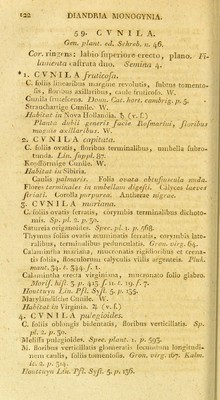 122 DIANDRIA MONOGYNIA.
59. CVNILA.
Gen. plant. ed. Schreb. n. 46.
Cor. ringens: labio superiore erecto, plano. Fi-
lamenta castrata duo. Semina 4.
*1. CVNILA fruticosa.
C. foliis linearibus margine revolutis, subtus tomento-
sis, floribus axillaribus, caule fruticoso. W.
Cunila fruticosa. Donn. Cat. hort. cambrig. p. 5.
Strauchartige Cunile. W.
Habitat in Nova Hollandia. ♄ (v. f.)
Planta dubii generis facie Rosmarini, floribus
magnis axillaribus. W.
2. CVNILA capitata.
C. foliis ovatis, floribus terminalibus, umbella subro-
tunda. Lin. suppl. 87.
Kopfförmige Cunile. W.
Habitat in Sibiria.
Caulis palmaris. Folia ovata obtusiuscula nuda.
Flores terminales in umbellam digesti. Calyces laeves
striati. Corolla purpurea. Antherae nigrae.
3. CVNILA mariana.
C. foliis ovatis serratis, corymbis terminalibus dichoto-
mis. Sp. pl. 2. p. 30.
Satureia origanoides. Spec. pl. 1. p. 568.
Thymus foliis ovatis acuminatis serratis, corymbis late-
ralibus, terminalibus pedunculatis. Gron. virg. 64.
Calamintha mariana, menonatis rigidioribus et crena-
tis foliis, flosculorum calyculis villis argenteis. Pluk.
mant. 34. t. 344. f. 1.
Calamintha erecta virginiana, mucronato folio glabro.
Moris. hist. 3. p. 413. s. 11. t. 19. f. 7.
Houttuyn Lin. Pfl. Syst. 5. p. 135.
Maryländische Cunile. W.
Habitat in Virginia. ♃ (v. f.)
4. CVNILA pulegioides.
C. foliis oblongis bidentatis, floribus verticillatis. Sp.
pl. 2. p. 30.
Melissa pulegioides. Spec. plant. 1. p. 593.
M. floribus verticillatis glomeratis foliorum longitudi-
num caulis, foliis tomentosis. Gron. virg. 167. Kalm.
it. 2. p. 314.
Houttuyn Lin. Pfl. Syst. 5. p. 136.